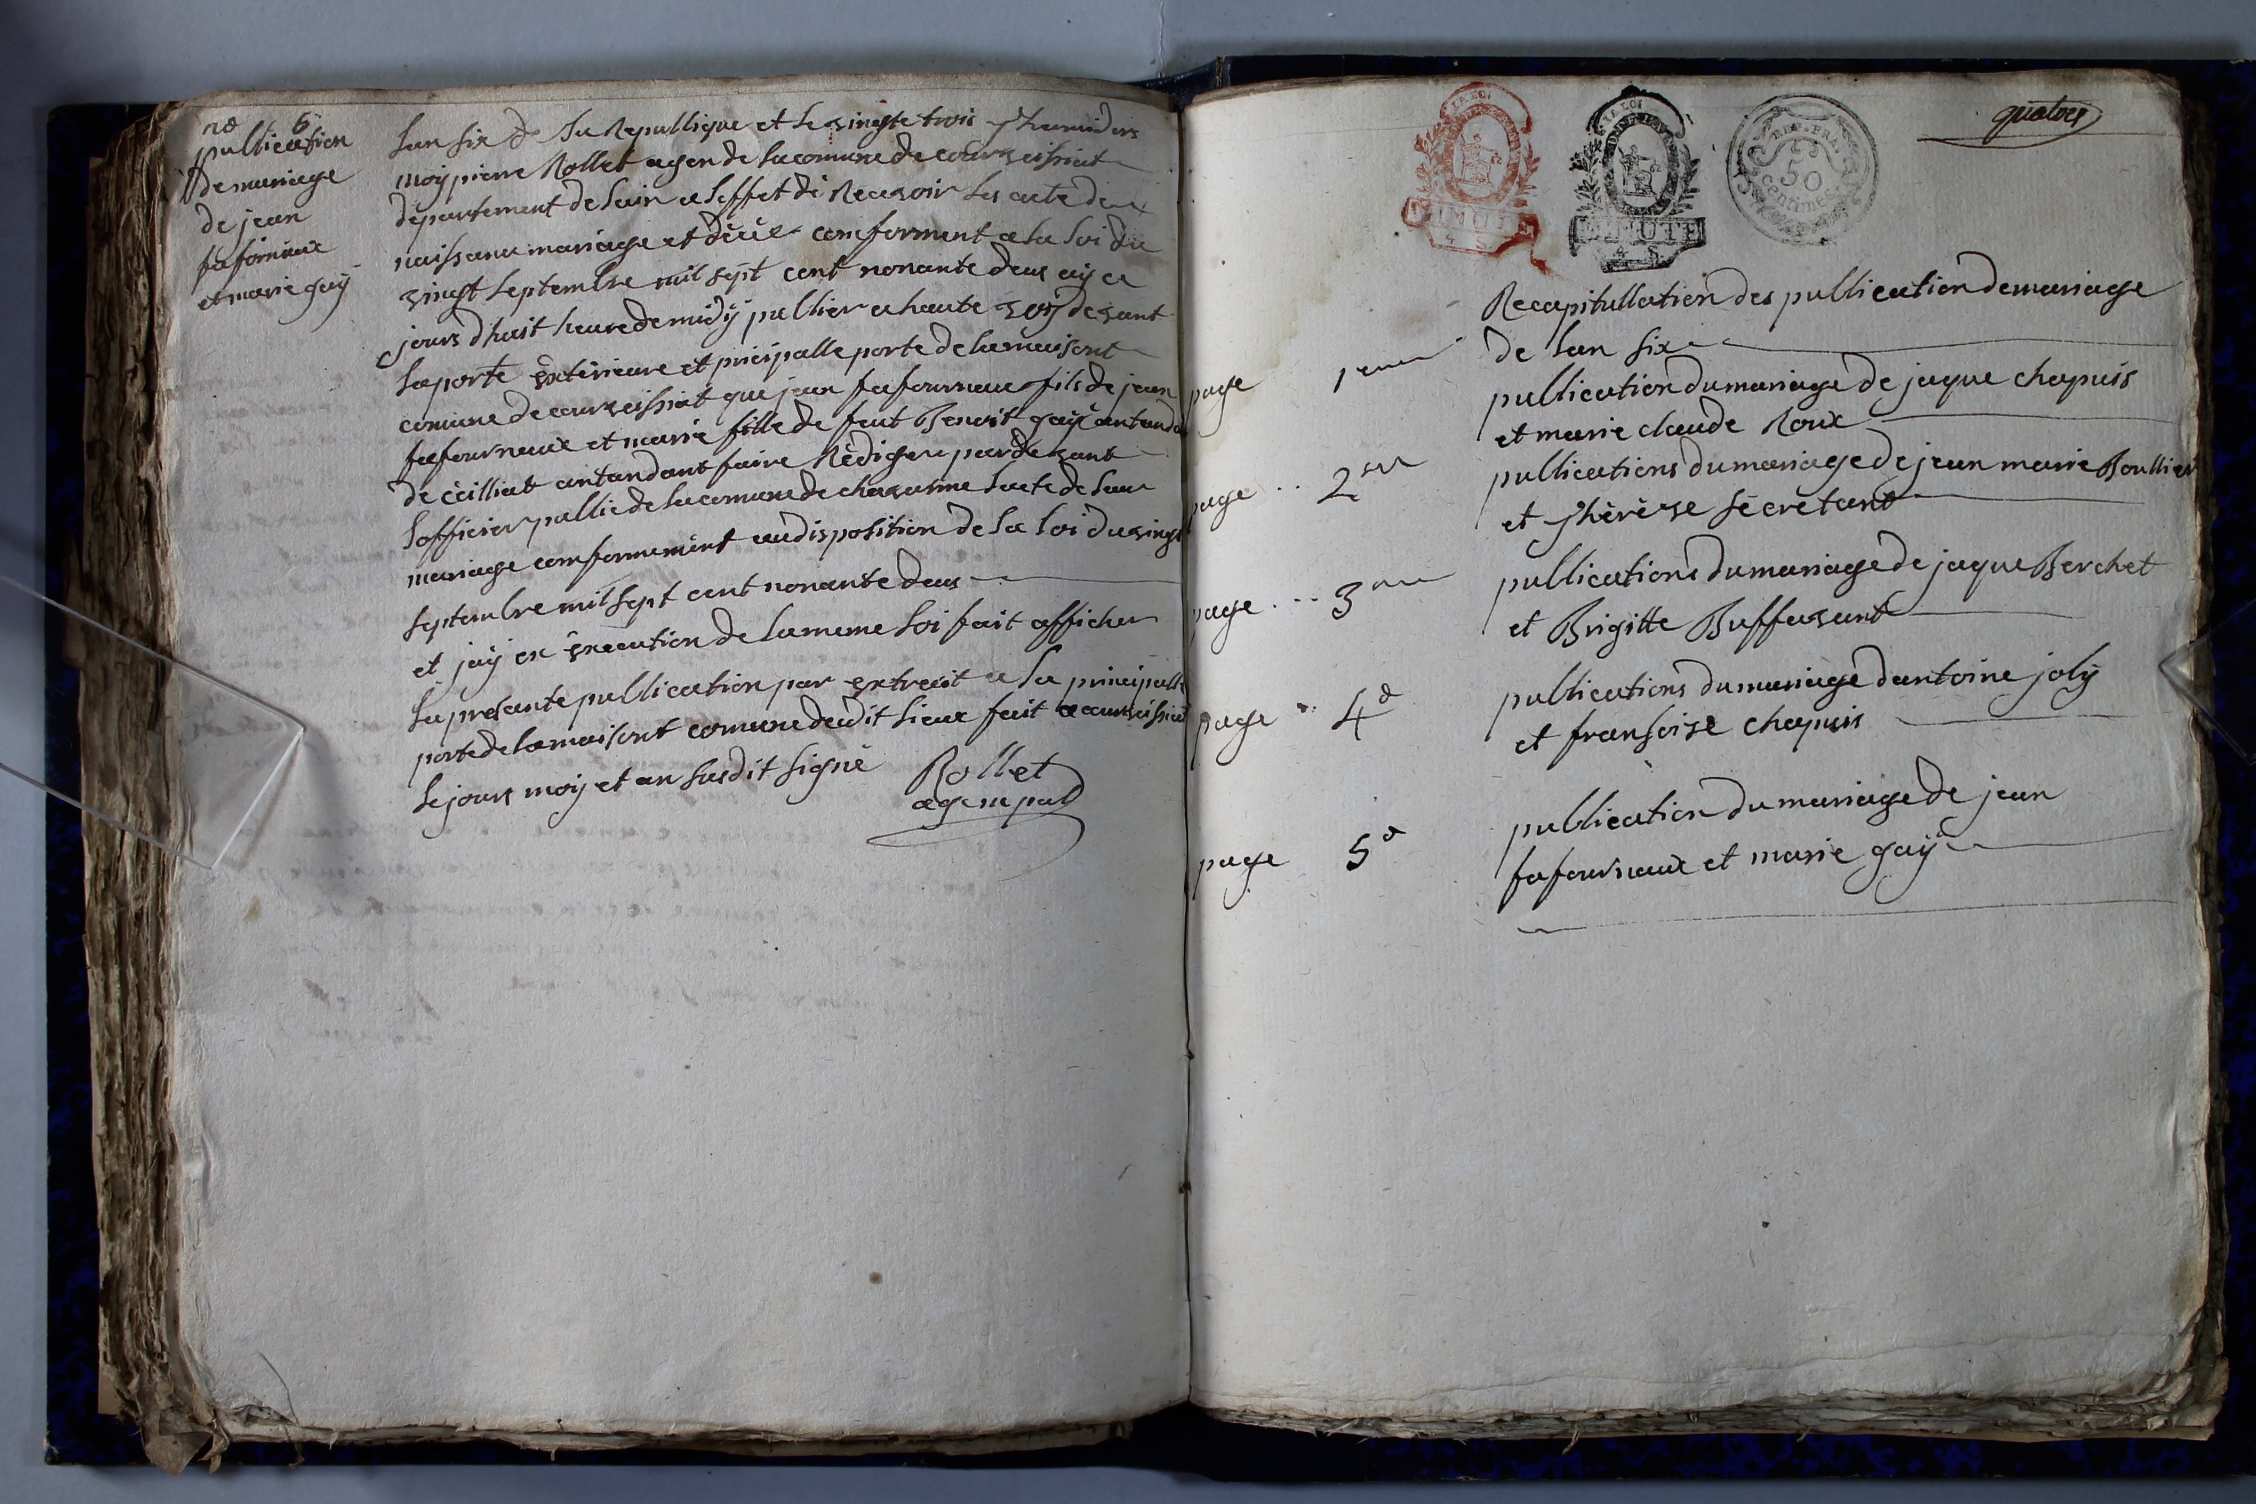 no 6
publication
de mariage
de jean
fafourniaux
et marie gaÿ
lan six de la Republlique et le vingte trois Thermidors
moÿ pierre Rollet agen de la comune de courveissiat
département de lain a leffet de Recevoir les acte de
naissance mariage et décés comforment a la loi du
vingt septembre mil sept cent nonante deus aÿ ce
jours dhuit heure de midÿ pullier a haute voiÿ devant
la porte extérieure et pricipalle porte de la maisont
comune de courveissiat que jean fafournaux fils de jean
fafournaux et marie fille de feut Benoit gaÿ
de ceilliat antandant faire Rédigeu pardevant
lofficier pullic de la comune de chavasme lacte de leur
mariage comformemént au disposition de la loi du vingt
septembre mil sept cent nonante deus
et jaÿ en éxecution de la meme loi fait afficher
la presante publication par extrait a la principalle
porte de la maisont comune dudit lieux fait a courveissiat
le jours moÿ et an susdit signé Rollet
agem pul
quatorz
LA LOI
LA LOI
REP. FRA.
50
centimes
MINUTE
MINUTE
4 S
4 S
Recapitullation des publlication de mariage
de lan six
page 1 publlication du mariage de jaque chapuis
et marie claude Roux
page 2 publlications du mariage de jean marie Boullier
et Therèse sécrétant
page 3 publlications du mariage de jaque Berchet
et Brigitte Buffavant
page 4 publlications du mariage dantoine jolÿ
et fransoise chapuis
page 5 publlication du mariage de jean
fafournaux et marie gaÿ